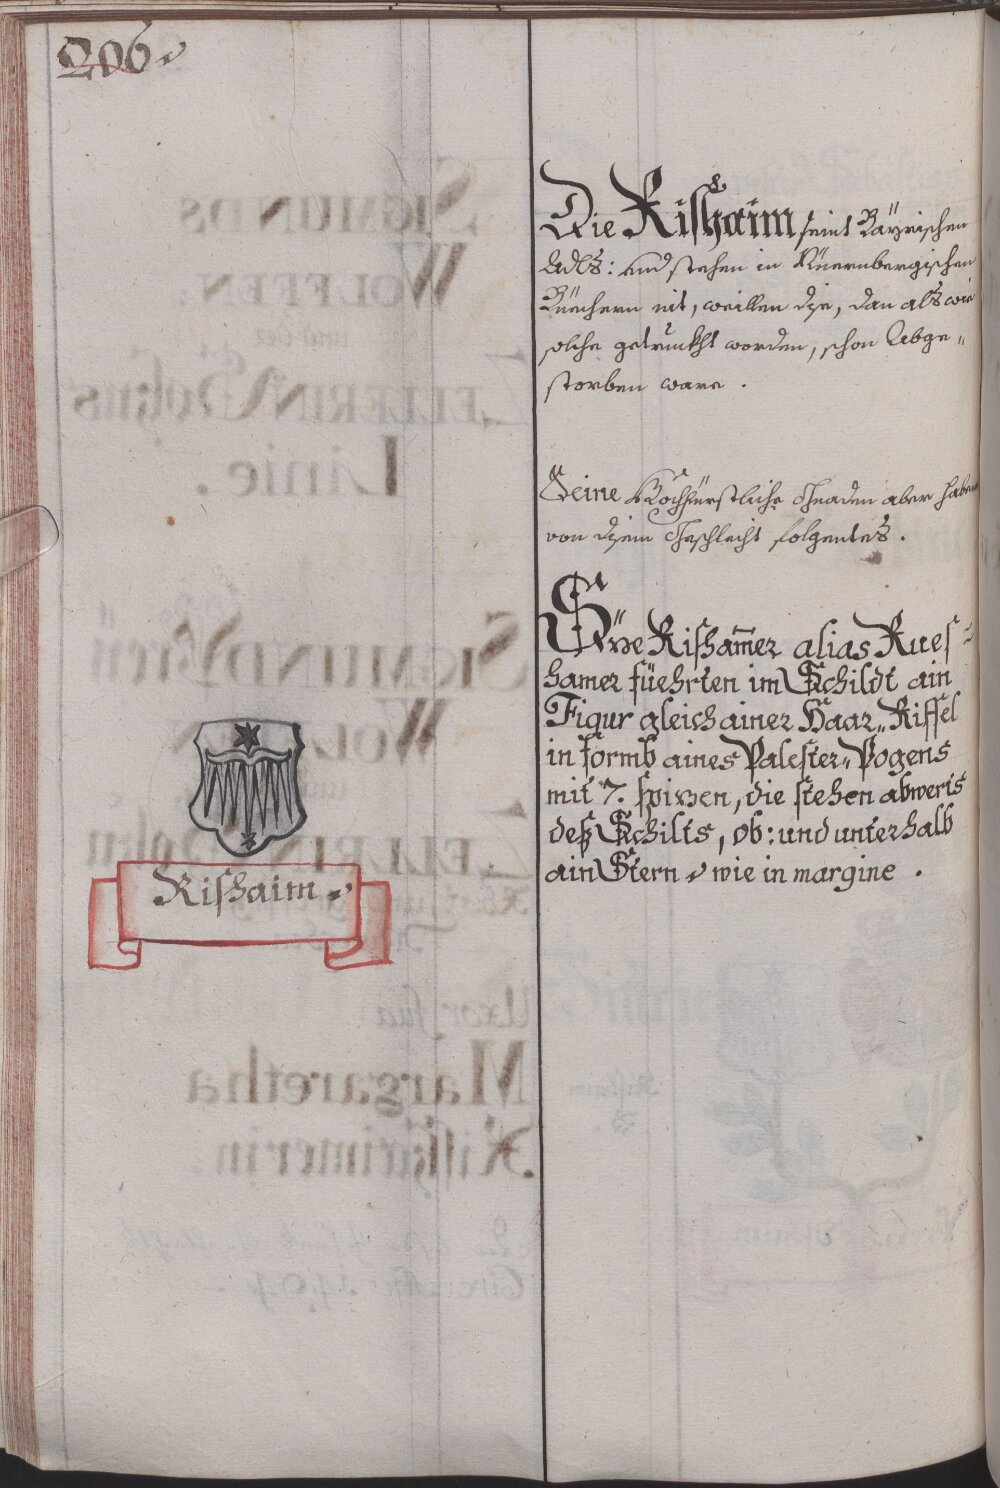 206.
Die Rishaim seint Bäyrischen
Adls: und stehen in Nüernbergischen
Büechern nit, weillen dise, dan alß wie
solche getruckht worden, schon Abge„
storben ware.
Seine Hochfürstliche Gnaden aber haben
von disem Geschlecht folgentes.
Düe Rishamer alias Rues=
hamer füehrten im Schildt ain
Figur gleich ainer Haar„Riffel
in formb aines Palester„Pogens
mit 7. spizen, die stehen abwerts
deß Schilts, ob: und unterhalb
ain Stern wie in margine.
Rishaim